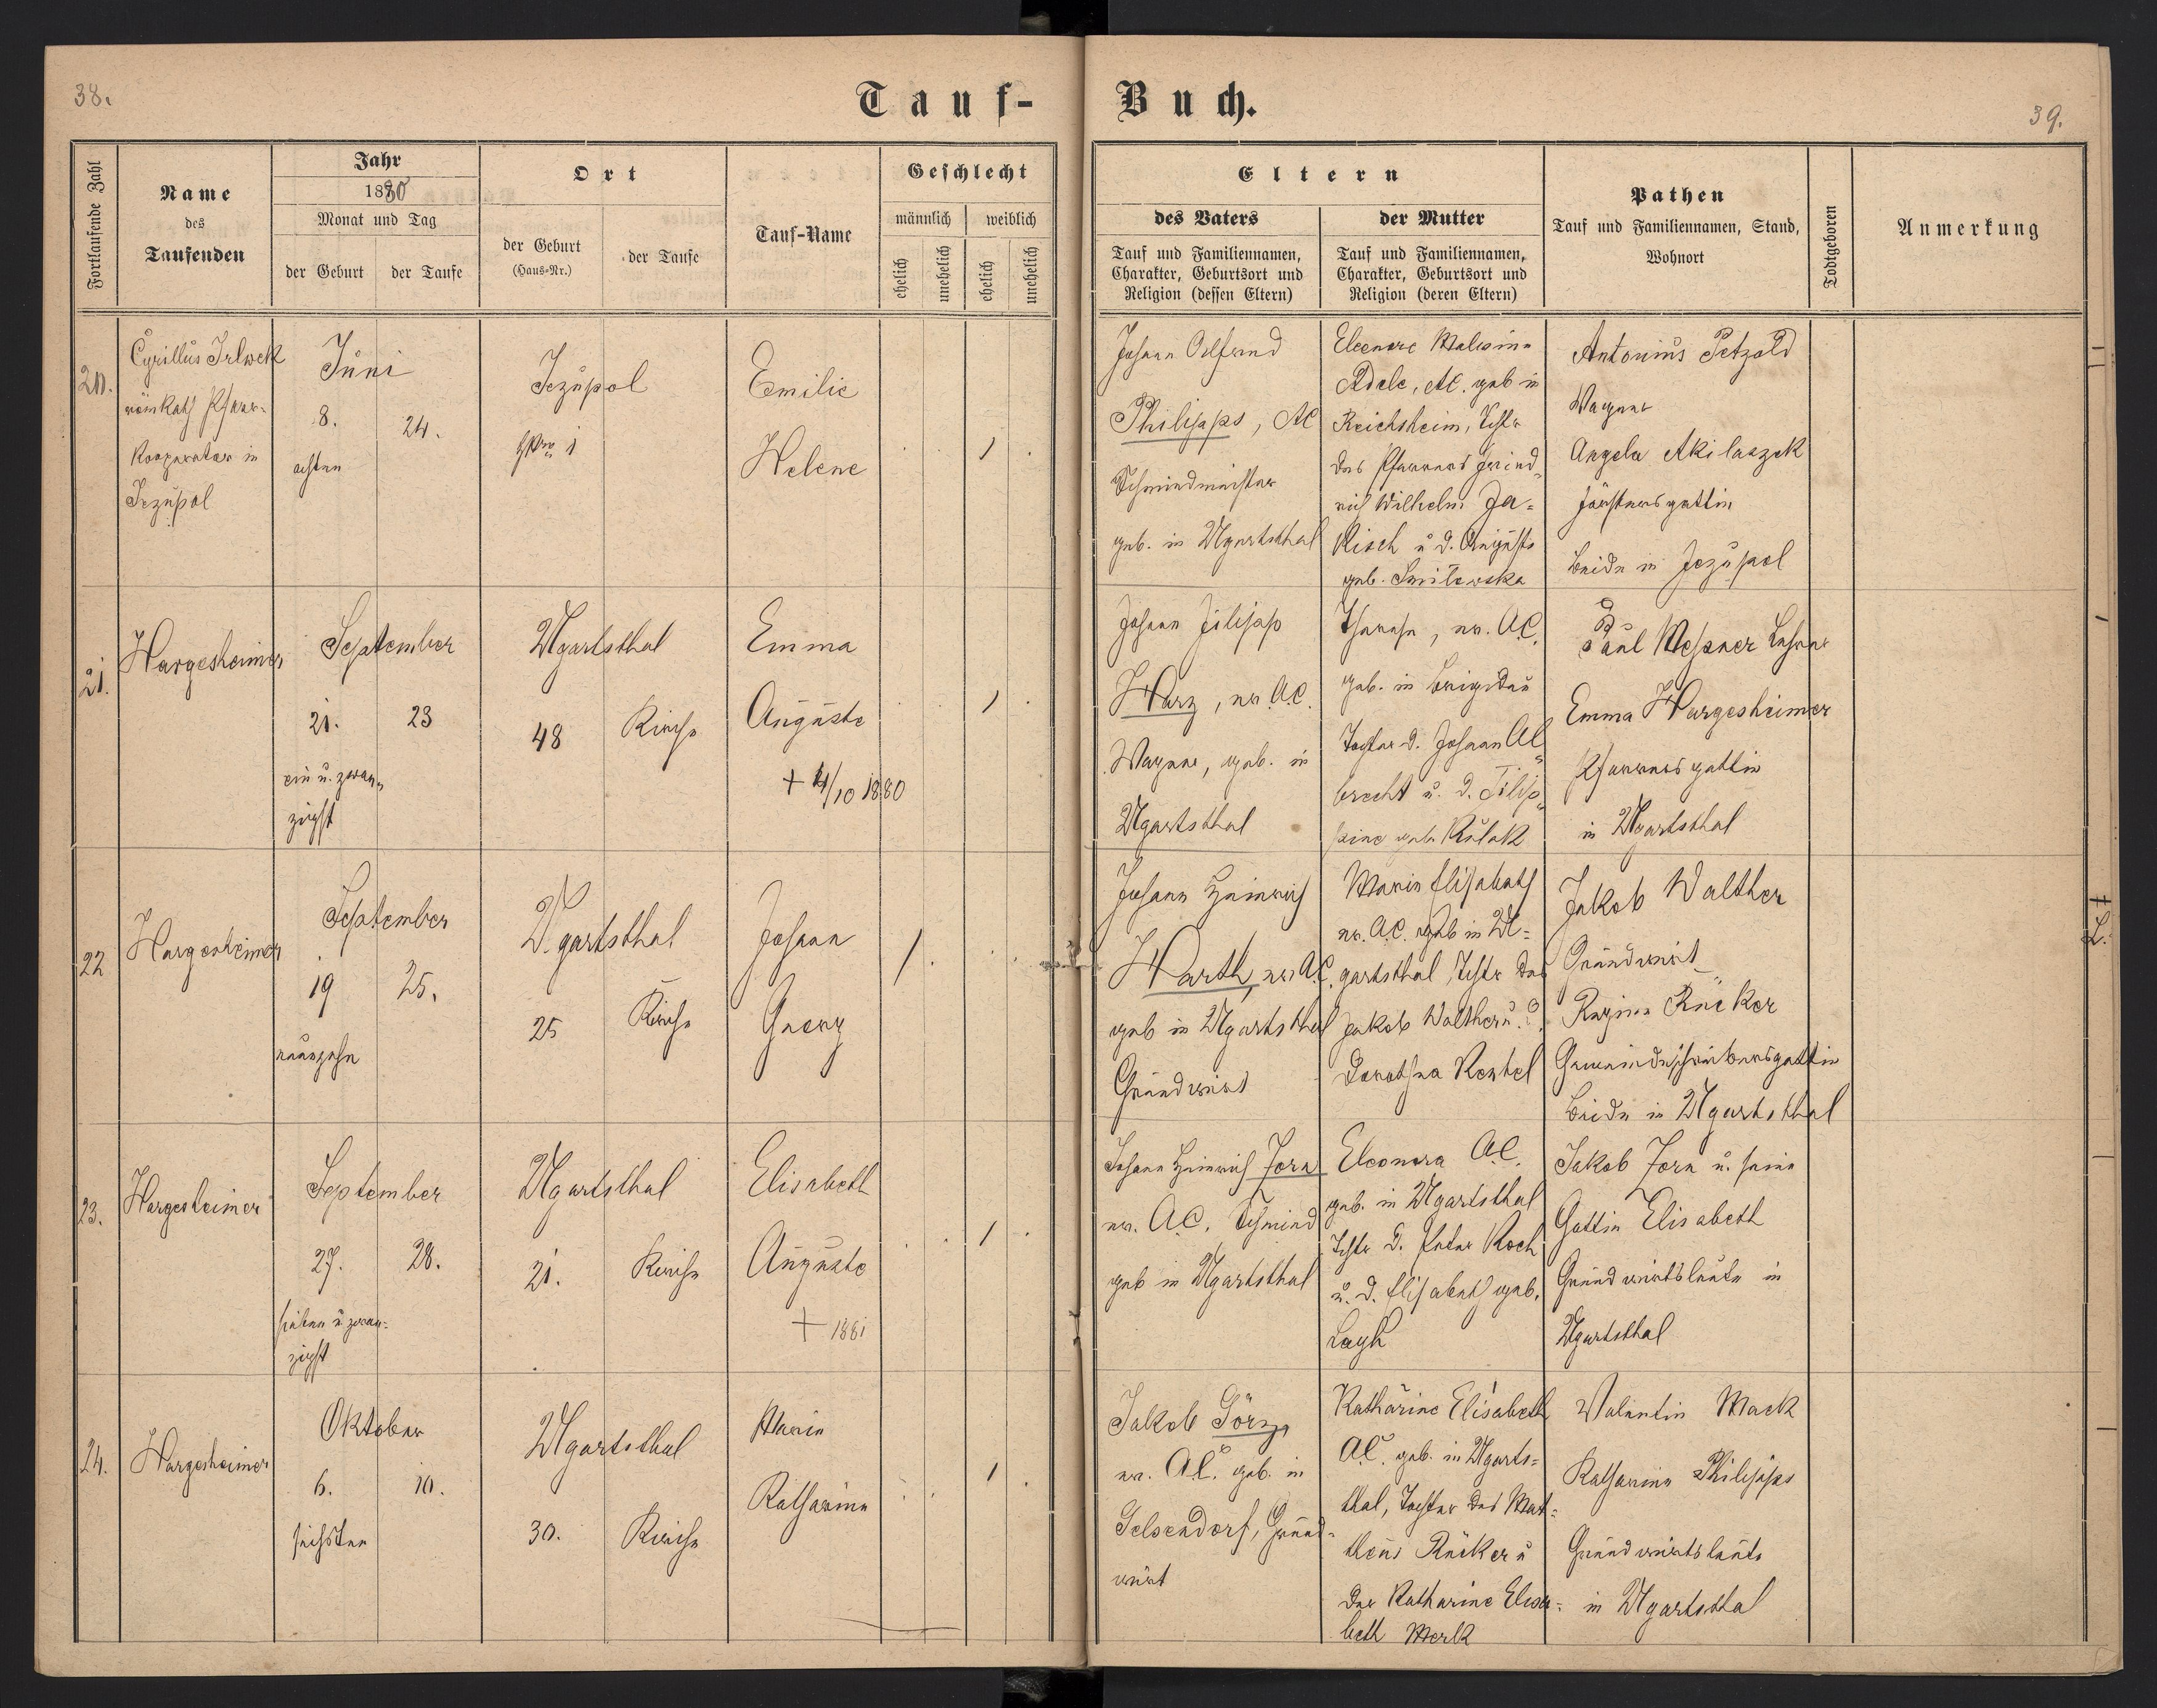 38.
Tauf-
Buch.
39.
Fortlaufende Zahl
Name
des
Taufenden
Jahr
1880
Monat und Tag
der Geburt
der Taufe
Ort
der Geburt
(Haus-Nr.)
der Taufe
Tauf-Name
Geschlecht
männlich
weiblich
ehelich
unehelich
ehelich
unehelich
Eltern
des Vaters
Tauf und Familiennamen,
Charakter, Geburtsort und
Religion (dessen Eltern)
der Mutter
Tauf und Familiennamen,
Charakter, Geburtsort und
Religion (deren Eltern)
Pathen
Tauf und Familiennamen, Stand,
Wohnort
Todtgeboren
Anmerkung
20.
Cyrillus
röm Kath Pfarr-
Kooperator in
Jezupol
Juni
8.
24.
achten
Jezupol
Emilie
Helene
Johann
Philipps, AC
Schmiedmeister
geb. in Ugartsthal
Eleonore Malwine
Adele, AC. geb in
Reichsheim, Tchtr
des Pfarrers Fried-
rich Wilhelm Ja-
kisch u d. Auguste
geb.
Antonius Petzold
Wagner
Angela
Förstersgattin
beide in Jezupol
21.
Hargesheimer
September
21.
23
ein u. zwan-
zigst
Ugartsthal
48
Kirche
Emma
Auguste
+ 4/10 1880
Johann Filipp
Harz, ev. A.C.
Wagner, geb. in
Ugartsthal
Therese, ev. A.C.
geb. in Brigidau
Tochter d. Johann Al-
brecht u. d. Filip-
pine geb Kulak
Paul Messner Lehrer
Emma Hargesheimer
Pfarrersgattin
in Ugartsthal
22
Hargesheimer
September
19
25.
neunzehn
Ugartsthal
25
Kirche
Johann
Georg
Johann Heinrich
Harth, ev. A.C.
geb in Ugartsthal
Grundwirt
Maria Elisabeth
ev. A.C. geb in U-
gartsthal, Tchtr des
Jakob Walther u. d.
Dorothea
Jakob Walther
Grundwirt
Regina Rücker
Gemeindeschreibersgattin
beide in Ugartsthal
23.
Hargesheimer
September
27.
28.
sieben u zwan-
zigst
Ugartsthal
21.
Kirche
Elisabeth
Auguste
+ 1881
Johann Heinrich Jorn
ev. A.C. Schmied
geb in Ugartsthal
Eleonora A.C.
geb. in Ugartsthal
Tchtr d. Peter Koch
u. d. Elisabeth geb.
Jakob Jorn u. seine
Gattin Elisabeth
Grundwirtsleute in
Ugartsthal
24.
Hargesheimer
Oktober
6.
10.
sechsten
Ugartsthal
30.
Kirche
Marie
Katharina
Jakob Görz,
ev. A.C. geb. in
Gelsendorf, Grund-
wirt
Katharine Elisabeth
A.C. geb. in Ugarts-
thal, Tochter des Mat-
theus Rücker u
der Katharine Elisa-
beth Merk
Valentin Mack
Katharina Philipps
Grundwirtsleute
in Ugartsthal